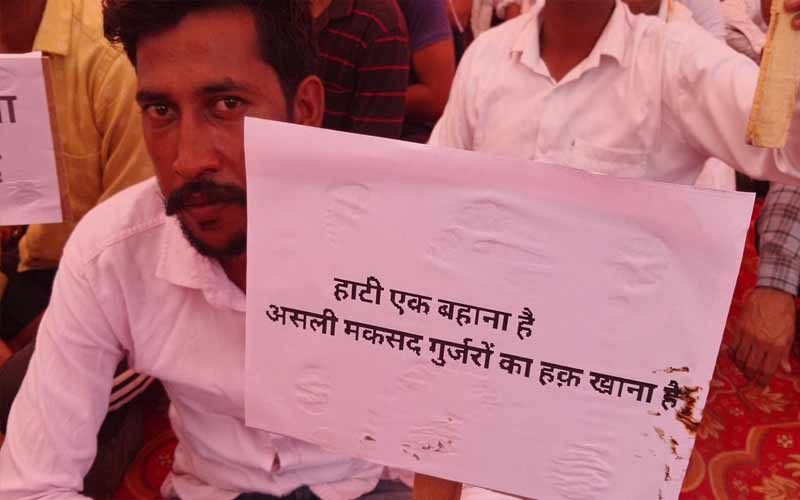 हाटी एक बहाना है
असली मकसद गुर्जरों का हक़ खाना है